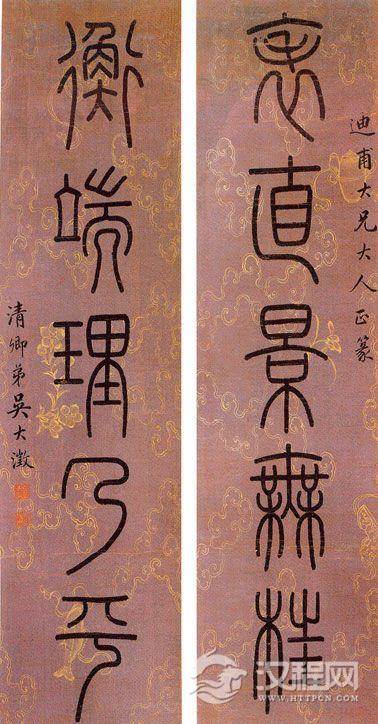 迪甫大兄大人正篆
表直景無枉
衡端理乃平
清卿弟吳大澂
汉程网
WWW.HTTPCN.COM